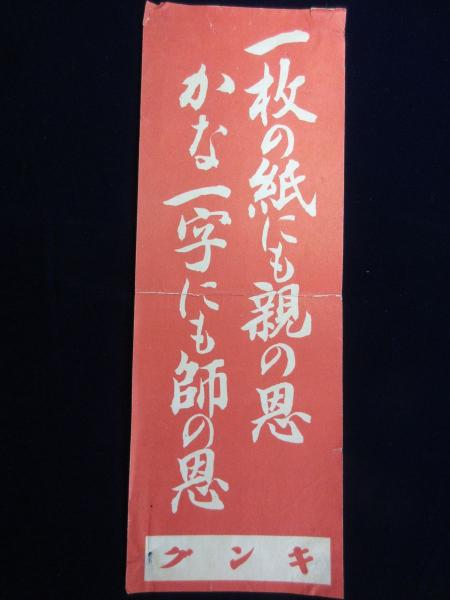 一枚の紙にも親の恩
かな一字にも師の恩
キング